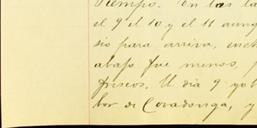 Tiempo. En las ta
el 9 el 10 y el 11 aunq
sio para arriva, inch
abajo fue menos, p
friscos. El dia 9 gol
bor de Covadonga, y